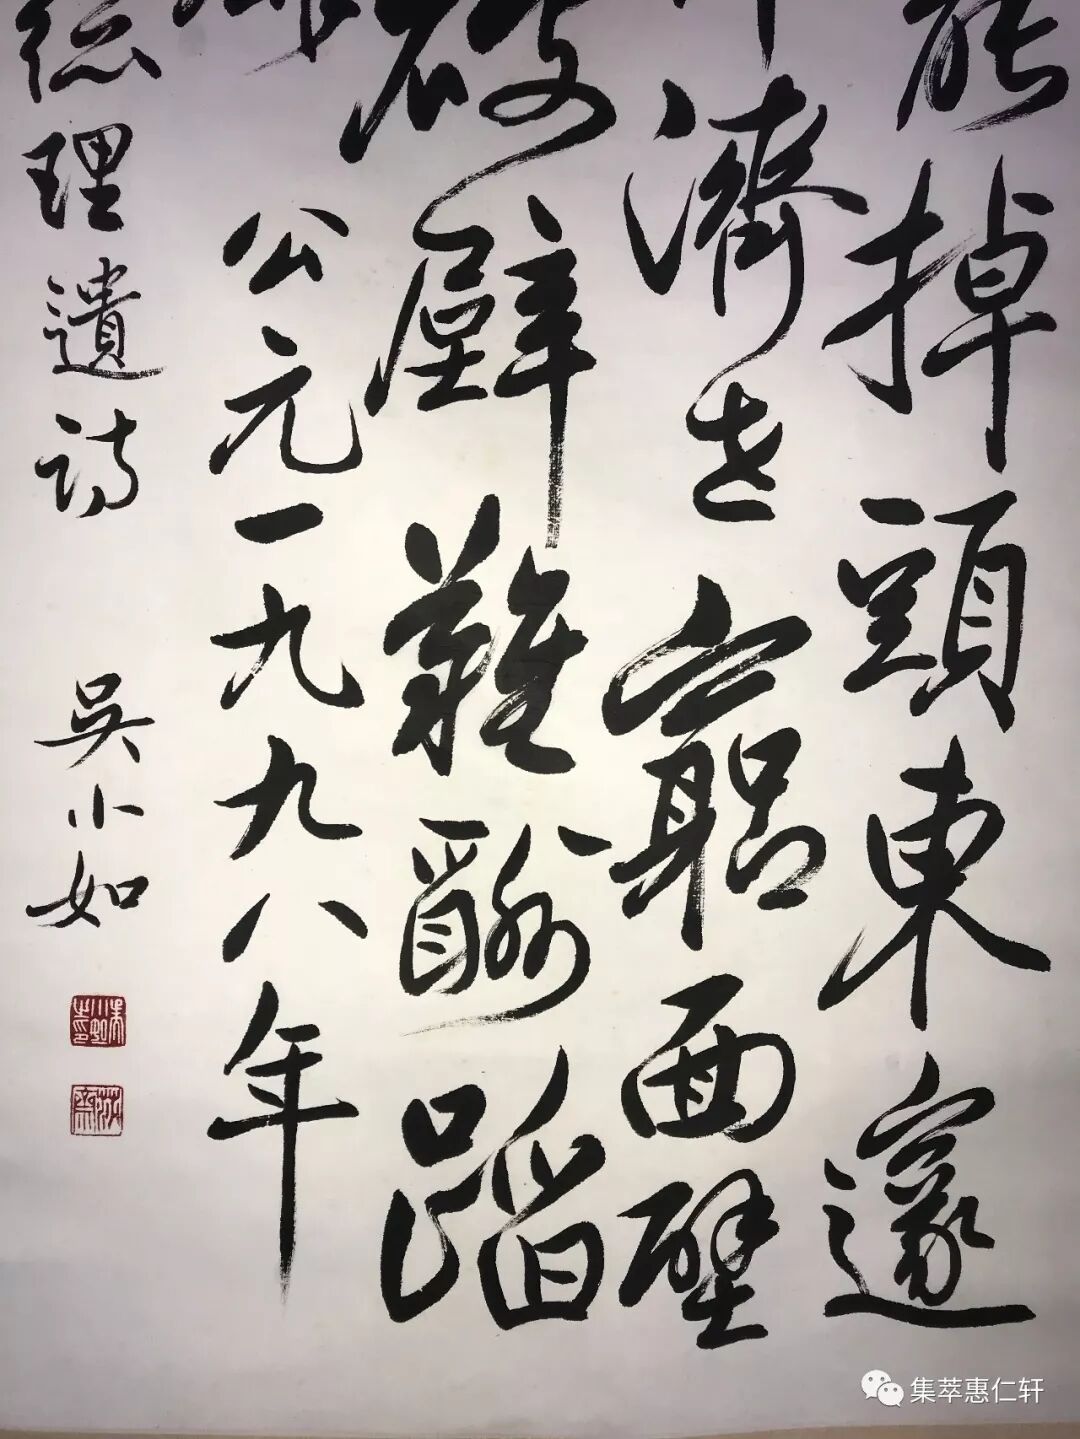 掉頭東邃
濟世窮面壁
破壁難酬蹈
公元一九九八年
總理遺詩 吳小如
莎齋
集萃惠仁轩